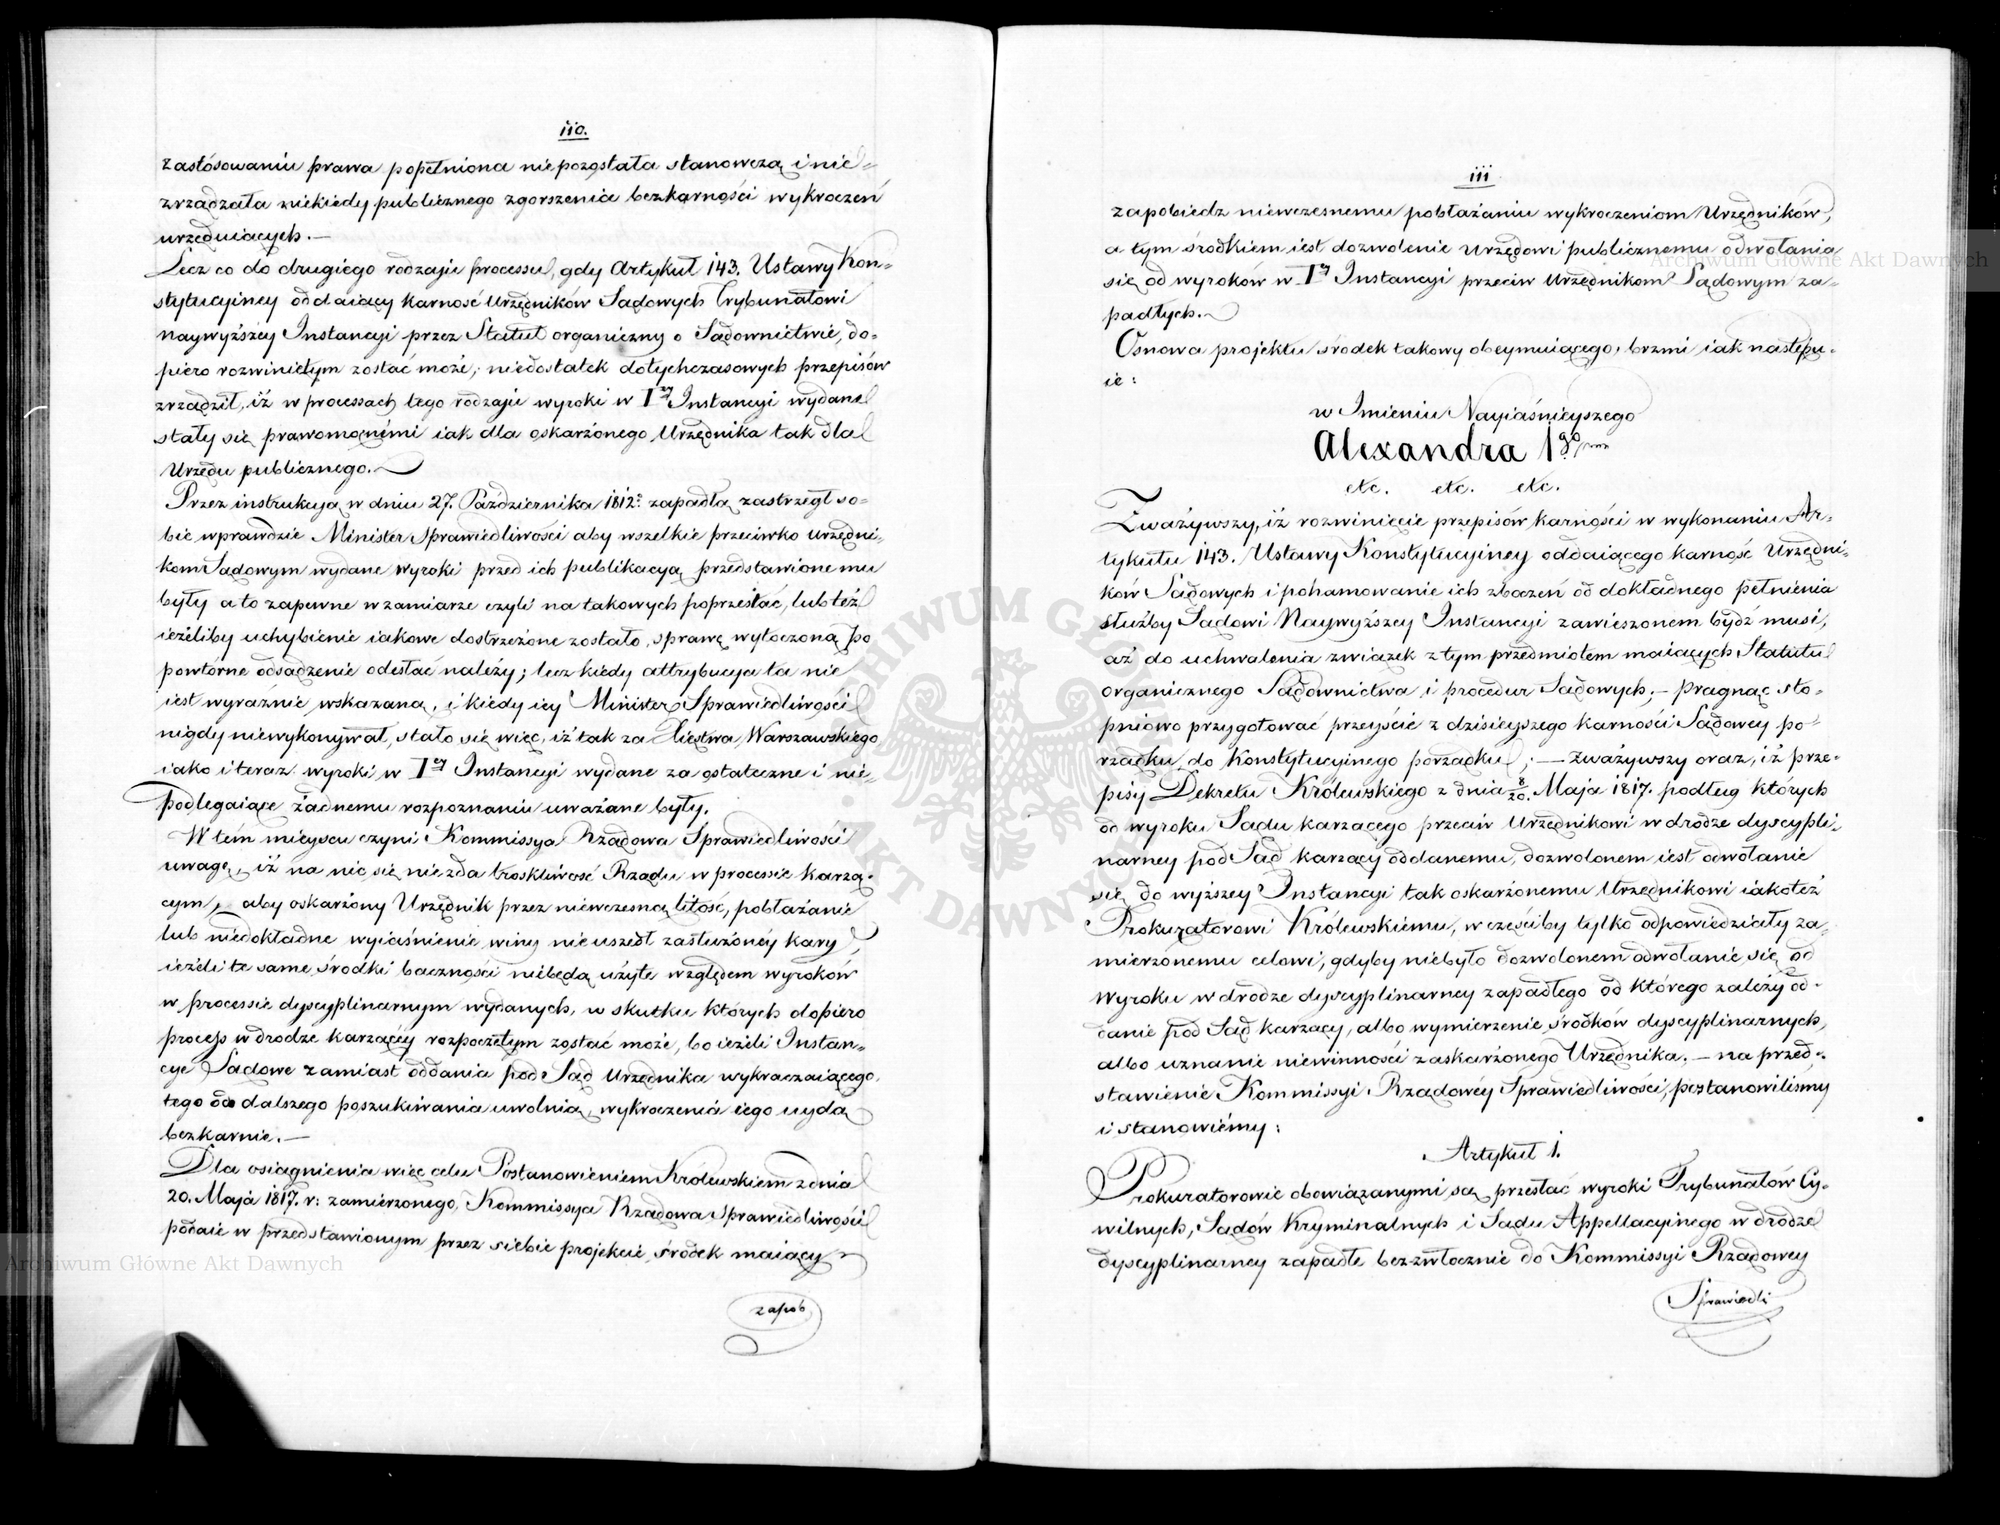 110.
zastósowaniu prawa popełniona niepozostała stanowczą i nie=
zrządzała niekiedy publicznego zgorszenia bezkarności wykroczeń
urzęduiących. —
Lecz co do drugiego rodzaju processu, gdy Artykuł 143. Ustawy Kon=
stytucyiney oddaiący karność Urzędników Sądowych Trybunałowi
naywyższey Instancyi przez Statut organiczny o Sądownictwie, do=
piero rozwiniętym zostać może; niedostatek dotychczasowych przepisów
zrządził, iż w processach tego rodzaju wyroki w Iey Instancyi wydane
stały się prawomocnemi iak dla oskarżonego Urzędnika tak dla
Urzędu publicznego. —
Przez instrukcyą w dniu 27. Października 1812 zapadłą zastrzegł so=
bie wprawdzie Minister Sprawiedliwości aby wszelkie przeciwko urzędni=
kom Sądowym wydane wyroki przed ich publikacyą przedstawione mu
były a to zapewne w zamiarze czyli na takowych poprzestać, lub też
ieżeliby uchybienie iakowe dostrzeżone zostało, sprawę wytoczoną po
powtórne odsądzenie odesłać należy; lecz kiedy attrybucya ta nie
iest wyraźnie wskazaną, i kiedy iey Minister Sprawiedliwości
nigdy niewykonywał, stało się więc, iż tak za Xięstwa Warszawskiego
iako i teraz wyroki w Iey Instancyi wydane za ostateczne i nie=
podlegaiące żadnemu rozpoznaniu uważane były.
W tém mieyscu czyni Kommissya Rządowa Sprawiedliwości
uwagę, iż na nic się niezda troskliwość Rządu w processie karzą=
cym, aby oskarżony Urzędnik przez niewczesną litość, pobłażanie
lub niedokładne wyiaśnienie winy nieuszedł zasłużonéy kary,
ieżeli te same środki baczności niebędą użyte względem wyroków
w processie dyscyplinarnym wydanych, w skutku których dopiero
process w drodze karzącéy rozpoczętym zostać może, bo ieżeli Instan=
cye Sądowe zamiast oddania pod Sąd Urzędnika wykraczaiącego,
tego od dalszego poszukiwania uwolnią, wykroczenia iego uydą
bezkarnie. —
Dla osiągnienia więc celu Postanowieniem Królewskiem z dnia
20. Maja 1817. r: zamierzonego, Kommissya Rządowa Sprawiedliwości
podaie w przedstawionym przez siebie projekcie, środek maiący
zapob
111
zapobiedz niewczesnemu pobłażaniu wykroczeniom Urzędników,
a tym środkiem iest dozwolenie Urzędowi publicznemu odwołania
się od wyroków w Iey Instancyi przeciw Urzędnikom Sądowym za=
padłych.
Osnowa projektu środek takowy obeymuiącego, brzmi iak następu=
ie:
w Imieniu Nayiaśnieyszego
Alexandra 1go
etc. etc. etc.
Zważywszy, iż rozwinięcie przepisów karności w wykonaniu Ar=
tykułu 143. Ustawy Konstytucyiney oddaiącego karność Urzędni=
ków Sądowych i pohamowanie ich zboczeń od dokładnego pełnienia
służby Sądowi Naywyższey Instancyi zawieszonem bydź musi,
aż do uchwalenia związek z tym przedmiotem maiących Statutu
organicznego Sądownictwa, i procedur Sądowych; — pragnąc sto=
pniowo przygotować przeyście z dzisieyszego karności Sądowey po=
rządku, do Konstytucyinego porządku; — zważywszy oraz, iż prze=
pisy Dekretu Królewskiego z dnia 8/20. Maja 1817. podług których
od wyroku Sądu karzącego przeciw Urzędnikowi w drodze dyscypli=
narney pod Sąd karzący oddanemu, dozwolonem iest odwołanie
się do wyższey Instancyi tak oskarżonemu Urzędnikowi iakoteż
Prokuratorowi Królewskiemu, w części by tylko odpowiedziały za=
mierzonemu celowi, gdyby niebyło dozwolonem odwołanie się od
wyroku w drodze dyscyplinarney zapadłego od którego zależy od=
danie pod Sąd karzący, albo wymierzenie środków dyscyplinarnych,
albo uznanie niewinności zaskarżonego Urzędnika. — na przed=
stawienie Kommissyi Rządowey Sprawiedliwości, postanowiliśmy
i stanowiémy:
Artykuł 1.
Prokuratorowie obowiązanymi są, przesłać wyroki Trybunałów Cy=
wilnych, Sądów Kryminalnych i Sądu Appellacyinego w drodze
dyscyplinarney zapadłe bezzwłocznie do Kommissyi Rządowey
Sprawiedli
Archiwum Główne Akt Dawnych
Archiwum Główne Akt Dawnych
ARCHIWUM GŁÓWNE AKT DAWNYCH